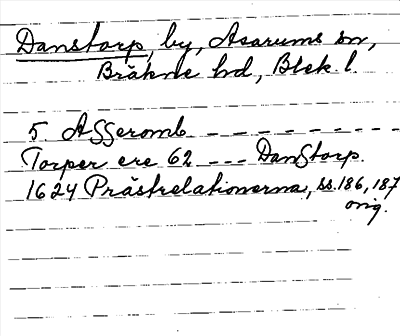 Danstorp, by, Asarums sn,
Bräkne hd, Blek. l.
5. Asseromb - - - - - - - - -
Torper ere 62 - - - Danstorp.
1624 Prästrelationerna, ss. 186, 187
orig.